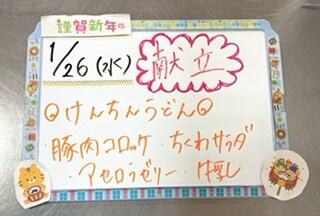 謹賀新年
1/26(水) 献立
◎けんちんうどん◎
豚肉コロッケ・ちくわサラダ
・アセロラゼリー・牛乳